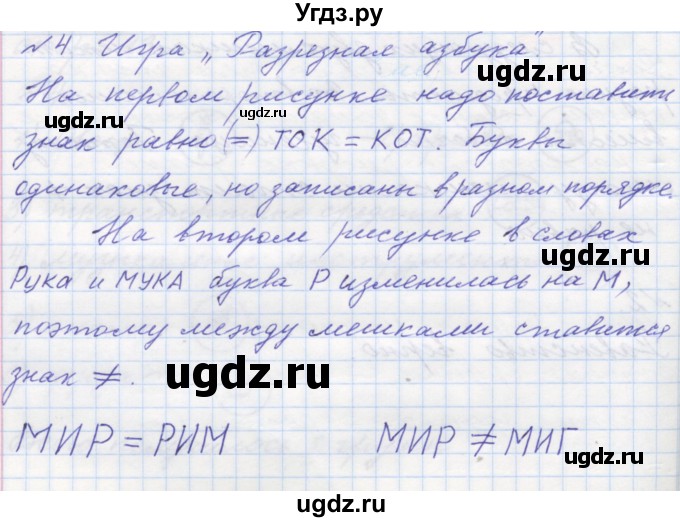 Угдз.ру
№4. Игра „Разрезная азбука".
На первом рисунке надо поставить
знак равно (=) ТОК = КОТ. Буквы
одинаковые, но записаны в разном порядке.
На втором рисунке в словах
РУКА и МУКА буква Р изменилась на М,
поэтому между мешками ставится
знак ≠.
МИР = РИМ МИР ≠ МИГ
ugdz.ru
ugdz.ru
ugdz.ru
ugdz.ru
ugdz.ru
ugdz.ru
ugdz.ru
ugdz.ru